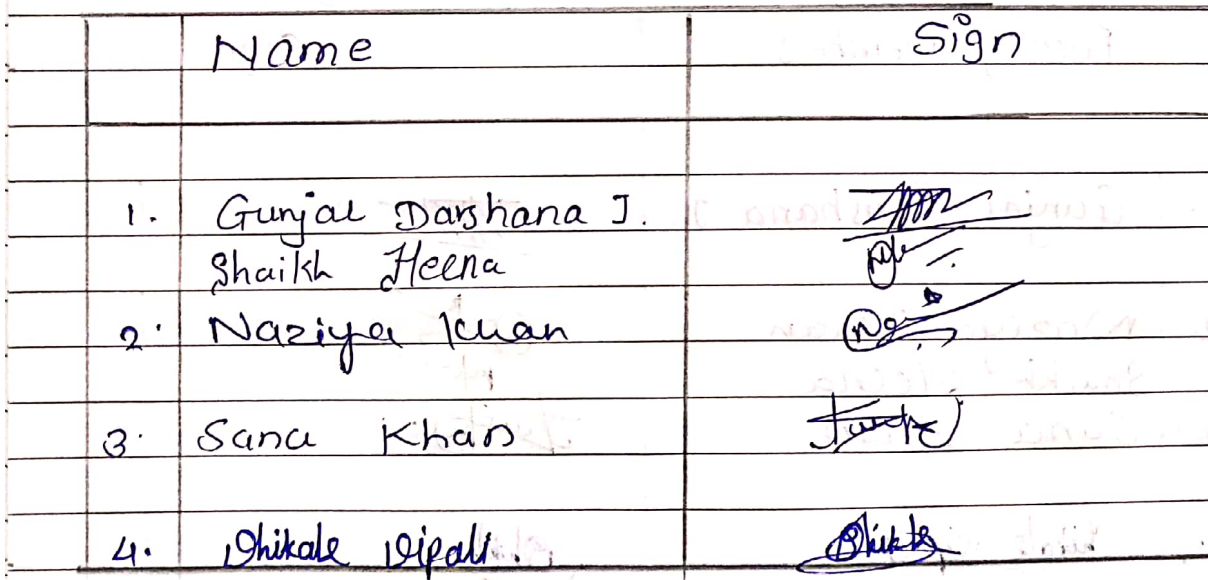 Name Sign
1. Gunjal Darshana J.
Shaikh Heena
2. Naziya Khan
3. Sana Khan
4. Dhikale Dipali.